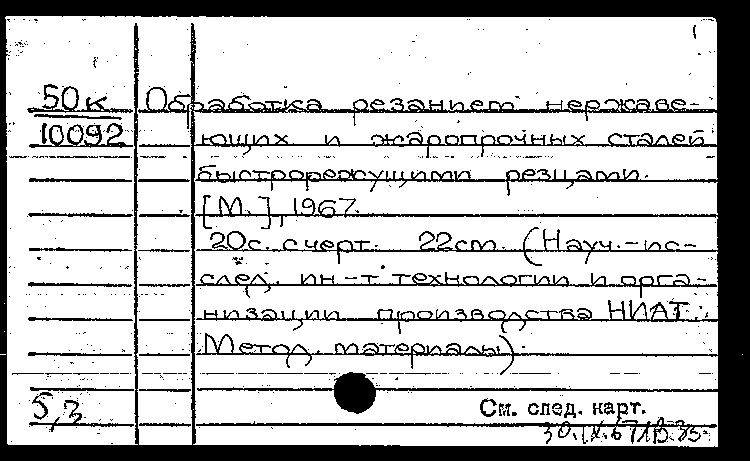 50к Обработка резанием нержаве-
10092 ющих и жаропрочных сталей
быстрорежущими резцами.
[М.], 1967.
20с. с черт. 22см. (Науч.-ис-
след. ин-т технологии и орга-
низации производства НИАТ.
Метод. материалы).
5,3
См. след. карт.
30.IX.67